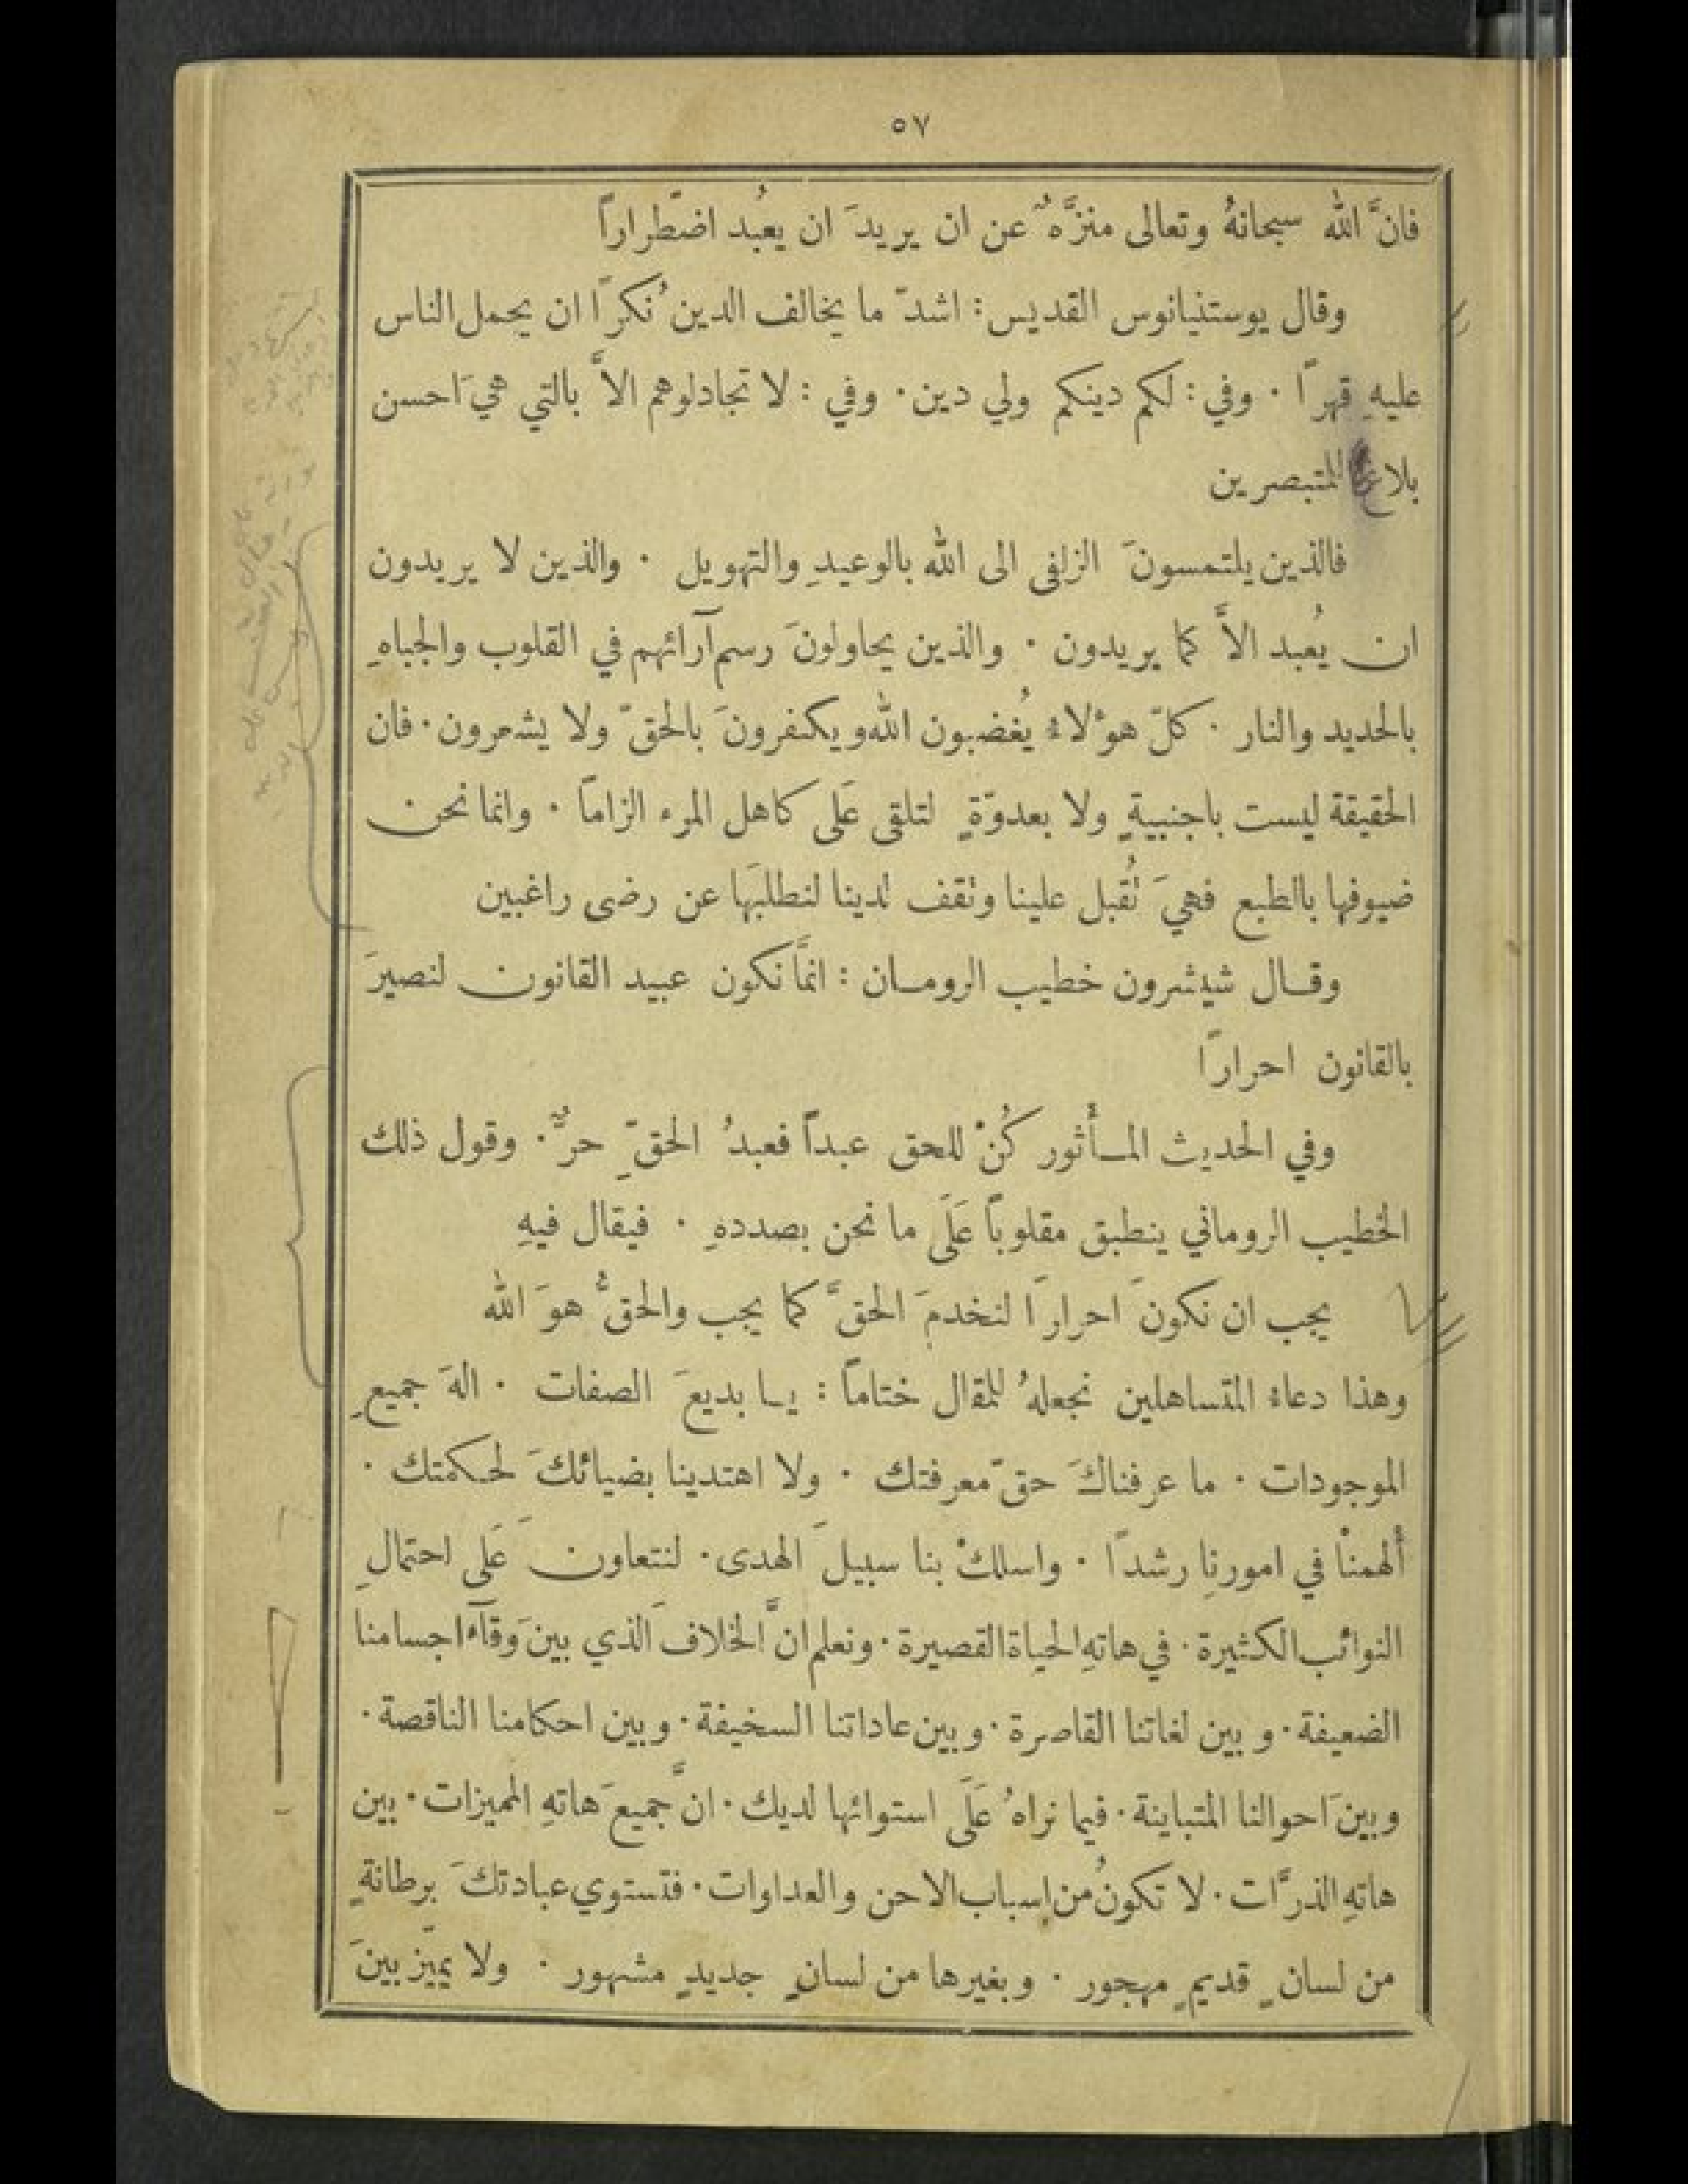 ٥٧
فانَّ الله سبحانهُ وتعالى منزَّهٌ عن ان يريدَ ان يعُبد اضّطراراً
وقال يوستنيانوس القديس: اشدّ ما يخالف الدين نُكرًا ان يحمل الناس
عليهِ قهرًا · وفي: لكم دينكم ولي دين · وفي : لا تجادلوهم الاَّ بالتي هيَ احسن
بلاغ للمتبصرين
فالذين يلتمسونَ الزلفى الى الله بالوعيدِ والتهويل · والذين لا يريدون
ان يُعبد الاَّ كما يريدون · والذين يحاولونَ رسم آرائهم في القلوب والجباهِ
بالحديد والنار · كلّ هوُلاءُ يُغضبون الله ويكفرونَ بالحقّ ولا يشعرون · فان
الحقيقة ليست باجنبيةٍ ولا بعدوّةٍ لتلقى عَلى كاهل المرء الزاماً · وانما نحن
ضيوفها بالطبع فهيَ تُقبل علينا وتقف لدينا لنطلبَها عن رضى راغبين
وقال شيشرون خطيب الرومان : انمَّا نكون عبيد القانون لنصيرَ
بالقانون احرارًا
وفي الحديث المأثور كُنْ للحق عبداً فعبدُ الحقّ حرٌّ · وقول ذلك
الخطيب الروماني ينطبق مقلوباً عَلَى ما نحن بصددهِ · فيقال فيهِ
يجب ان نكونَ احرارًا لنخدمَ الحقَّ كما يجب والحقُّ هوَ الله
وهذا دعاءُ المتساهلين نجعلهُ للمقال ختاماً : يا بديعَ الصفات · الهَ جميعِ
الموجودات · ما عرفناكَ حقّ معرفتك · ولا اهتدينا بضيائكَ لحكمتك ·
ألهمنْا في امورنِا رشدًا · واسلكْ بنا سبيلَ الهدى · لنتعاونَ عَلى احتمالِ
النوائب الكثيرة · في هاتهِ الحياة القصيرة · ونعلم انَّ الخلافَ الذي بينَ وقآء اجسامنا
الضعيفة · وبين لغاتنا القاصرة · وبين عاداتنا السخيفة · وبين احكامنا الناقصة ·
وبينَ احوالنا المتباينة · فيما نراهُ عَلَى استوائها لديك · انَّ جميعَ هاتهِ المميزات · بين
هاتهِ الذرَّات · لا تكونُ من اسباب الاحن والعداوات · فتستوي عبادتكَ برطانةٍ
من لسانٍ قديمٍ مهجور · وبغيرها من لسانٍ جديدٍ مشهور · ولا يميّز بينَ